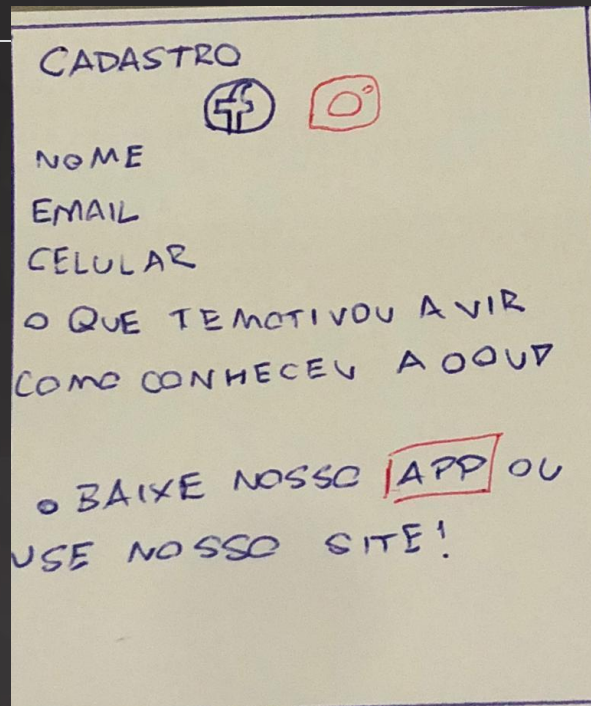 CADASTRO
NOME
EMAIL
CELULAR
O QUE TE MOTIVOU A VIR
COMO CONHECEU A
• BAIXE NOSSO APP OU
USE NOSSO SITE!